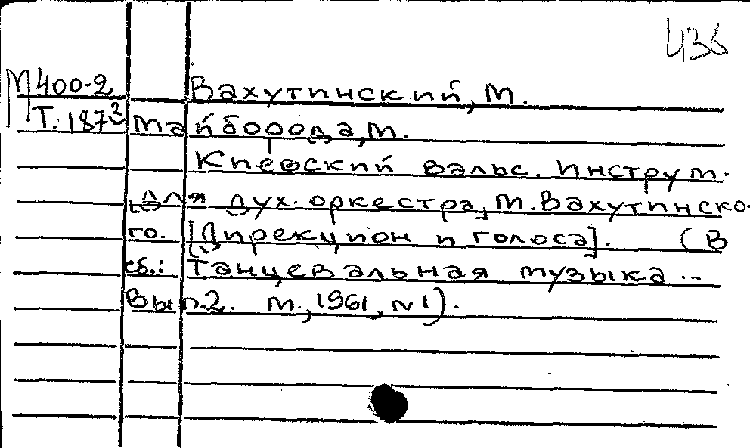 436
М 400-2 Вахутинский, М.
Т. 1873 Майборода, М.
Киевский вальс. Инструм.
для дух. оркестра, М. Вахутинско-
го. [Дирекцион и голоса]. (В
сб.: Танцевальная музыка...
Вып. 2. М., 1961, №1).